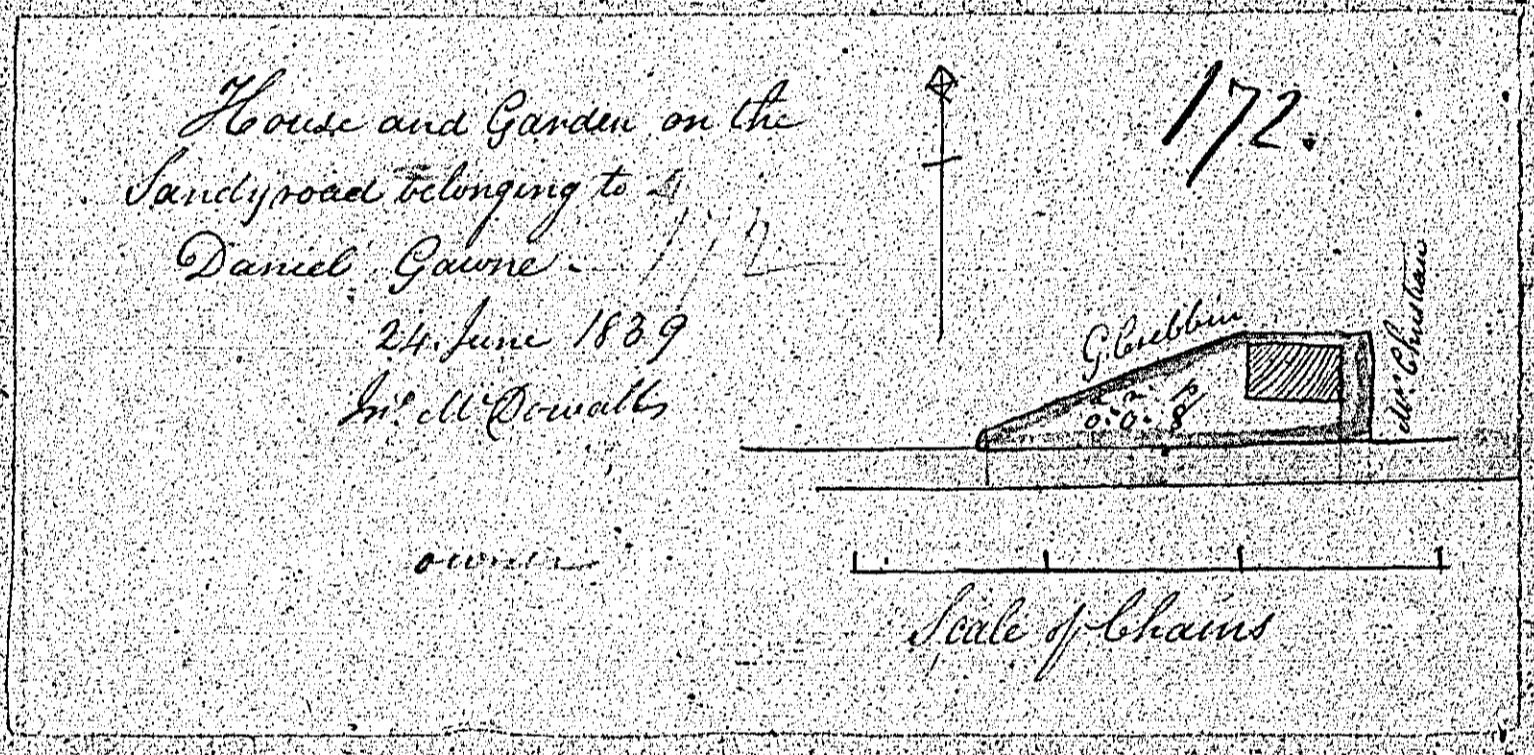 House and Garden on the
Sandyroad belonging to
Daniel Gawne -
172
24. June 1839
Jnº McDowall
owner
172.
G Crebbin
Mr Christian
a r p
0. 0. 8
Scale of Chains